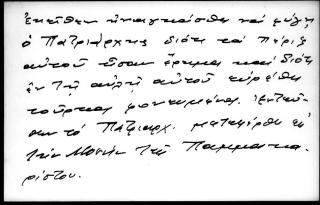 ἐκεῖθεν ἠναγκάσθη νά φύγῃ
ὁ Πατριάρχης διότι τά πέριξ
αὐτοῦ ἦσαν ἔρημα καί διότι
ἐν τῇ αὐλῇ αὐτοῦ εὑρέθη
τοῦρκος φονευμένος. Ἐντεῦ-
θεν τό Πατριαρχ. μετηνέχθη εἰς
τήν Μονήν τῆς Παμμακα-
ρίστου.